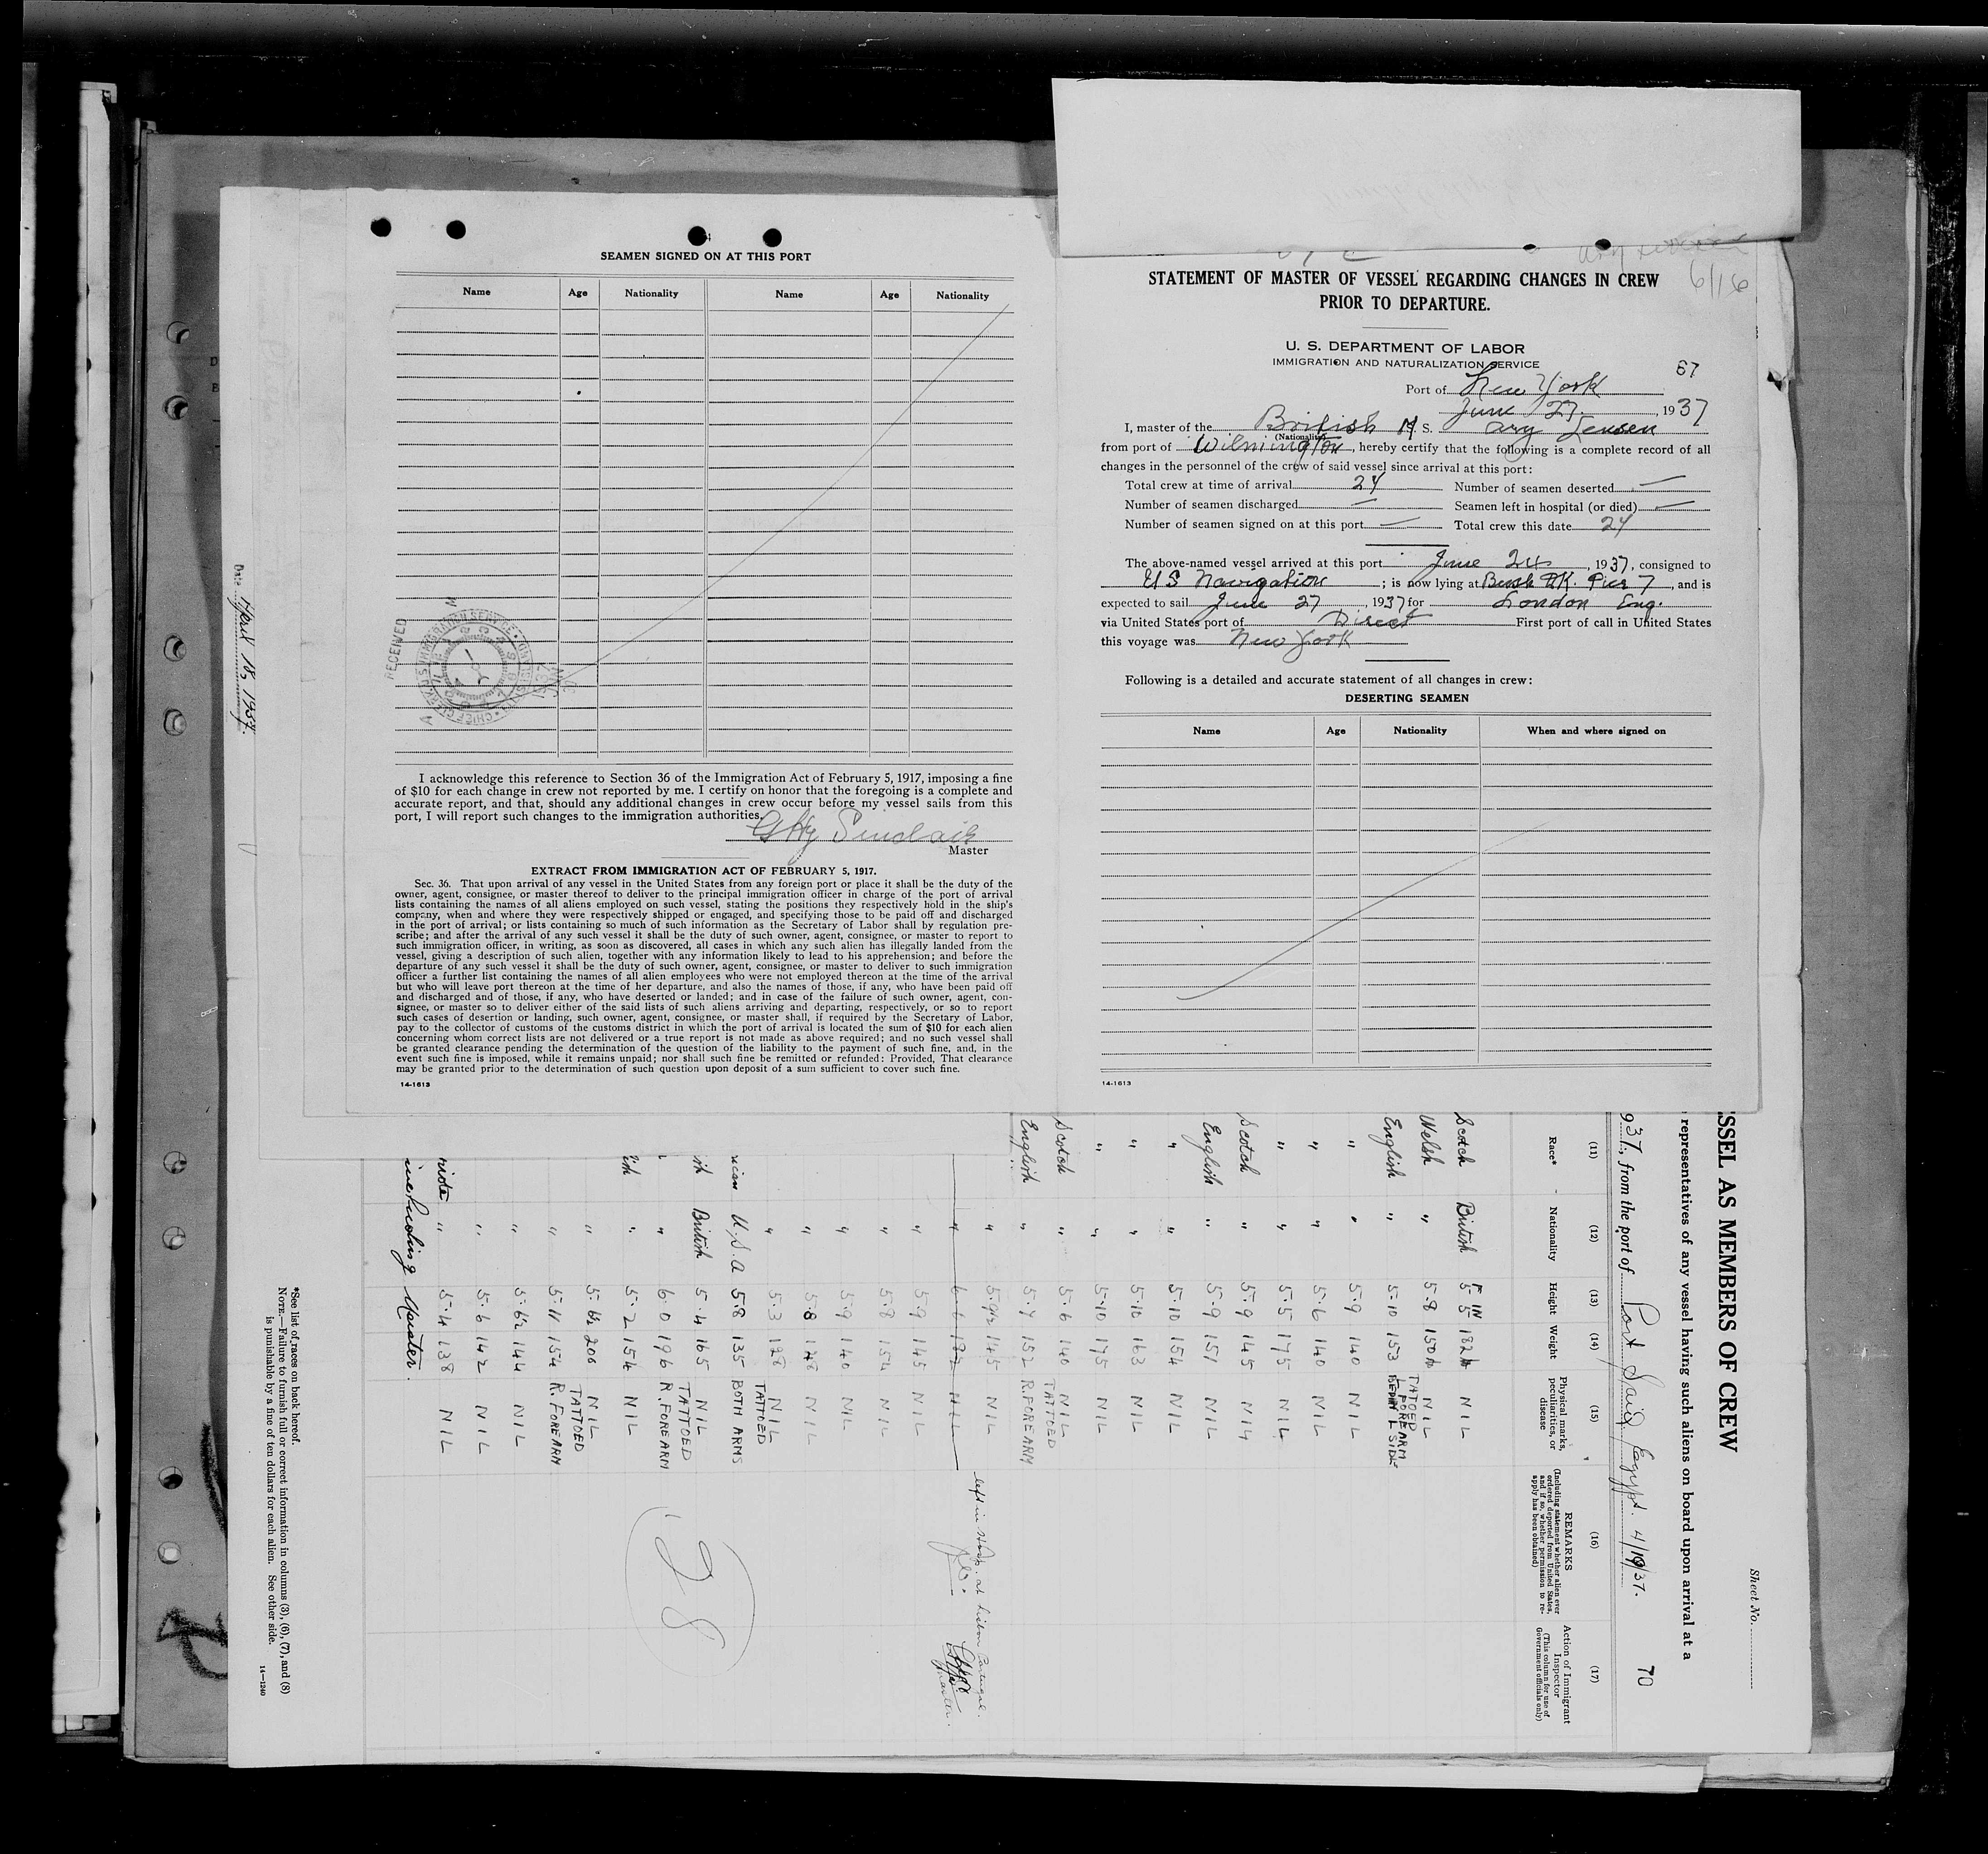 SEAMEN SIGNED ON AT THIS PORT
Name Age Nationality Name Age Nationality
RECEIVED
I acknowledge this reference to Section 36 of the Immigration Act of February 5, 1917, imposing a fine
of $10 for each change in crew not reported by me. I certify on honor that the foregoing is a complete and
accurate report, and that, should any additional changes in crew occur before my vessel sails from this
port, I will report such changes to the immigration authorities.
Sinclair
Master
EXTRACT FROM IMMIGRATION ACT OF FEBRUARY 5, 1917.
Sec. 36. That upon arrival of any vessel in the United States from any foreign port or place it shall be the duty of the
owner, agent, consignee, or master thereof to deliver to the principal immigration officer in charge of the port of arrival
lists containing the names of all aliens employed on such vessel, stating the positions they respectively hold in the ship's
company, when and where they were respectively shipped or engaged, and specifying those to be paid off and discharged
in the port of arrival; or lists containing so much of such information as the Secretary of Labor shall by regulation pre-
scribe; and after the arrival of any such vessel it shall be the duty of such owner, agent, consignee, or master to report to
such immigration officer, in writing, as soon as discovered, all cases in which any such alien has illegally landed from the
vessel, giving a description of such alien, together with any information likely to lead to his apprehension; and before the
departure of any such vessel it shall be the duty of such owner, agent, consignee, or master to deliver to such immigration
officer a further list containing the names of all alien employees who were not employed thereon at the time of the arrival
but who will leave port thereon at the time of her departure, and also the names of those, if any, who have been paid off
and discharged and of those, if any, who have deserted or landed; and in case of the failure of such owner, agent, con-
signee, or master so to deliver either of the said lists of such aliens arriving and departing, respectively, or so to report
such cases of desertion or landing, such owner, agent, consignee, or master shall, if required by the Secretary of Labor,
pay to the collector of customs of the customs district in which the port of arrival is located the sum of $10 for each alien
concerning whom correct lists are not delivered or a true report is not made as above required; and no such vessel shall
be granted clearance pending the determination of the question of the liability to the payment of such fine, and, in the
event such fine is imposed, while it remains unpaid; nor shall such fine be remitted or refunded: Provided, That clearance
may be granted prior to the determination of such question upon deposit of a sum sufficient to cover such fine.
14-1613
6/16
STATEMENT OF MASTER OF VESSEL REGARDING CHANGES IN CREW
PRIOR TO DEPARTURE.
U. S. DEPARTMENT OF LABOR
IMMIGRATION AND NATURALIZATION SERVICE
67
Port of New York
June 27, 1937
I, master of the British M. S. Ary Lensen
(Nationality)
from port of Wilmington, hereby certify that the following is a complete record of all
changes in the personnel of the crew of said vessel since arrival at this port:
Total crew at time of arrival 24 Number of seamen deserted —
Number of seamen discharged — Seamen left in hospital (or died) —
Number of seamen signed on at this port — Total crew this date 24
The above-named vessel arrived at this port June 24, 1937, consigned to
US Navigation; is now lying at Bush DK. Pier 7, and is
expected to sail June 27, 1937 for London Eng.
via United States port of Direct First port of call in United States
this voyage was New York
Following is a detailed and accurate statement of all changes in crew:
DESERTING SEAMEN
Name Age Nationality When and where signed on
14-1613
Sheet No.
SSEL AS MEMBERS OF CREW
representatives of any vessel having such aliens on board upon arrival at a
937, from the port of Port Said Egypt. 4/19/37. 70
(11) (12) (13) (14) (15) (16) (17)
Race* Nationality Height Weight Physical marks, peculiarities, or disease REMARKS (Including statement whether alien ever ordered deported from United States, and if so, whether permission to re-apply has been obtained) Action of Immigrant Inspector (This column for use of Government officials only)
Scotch British 5 5 182 NIL
Welsh " 5.8 150 NIL
TATTOED L FOREARM
English " 5.10 153 L SIDE
" " 5.9 140 NIL
" " 5.6 140 NIL
" " 5.5 175 NIL
Scotch " 5.9 145 NIL
English " 5.9 151 NIL
" " 5.10 154 NIL
" " 5.10 163 NIL
" " 5.10 175 NIL
Scotch " 5.6 140 NIL
English " 5.7 152 TATTOED R. FOREARM
" 5.9½ 145 NIL
" NIL left in Hosp. at Lisbon Portugal.
" 5.9 145 NIL
" 5.8 154 NIL
" 5.9 140 NIL
" 5.8 128 NIL
" 5.3 128 NIL
rican U.S.A 5.8 135 TATTOED BOTH ARMS
ish British 5.4 165 NIL
" 6.0 196 TATTOED R. FOREARM
ish " 5.2 154 NIL
" 200 NIL
" 5.11 154 TATTOED R. FOREARM
" 5.6½ 144 NIL
" 5.6 142 NIL
" 5.4 138 NIL
28
including Master.
*See list of races on back hereof.
NOTE.—Failure to furnish full or correct information in columns (3), (6), (7), and (8)
is punishable by a fine of ten dollars for each alien. See other side.
14—1240
Date April 18, 1937.